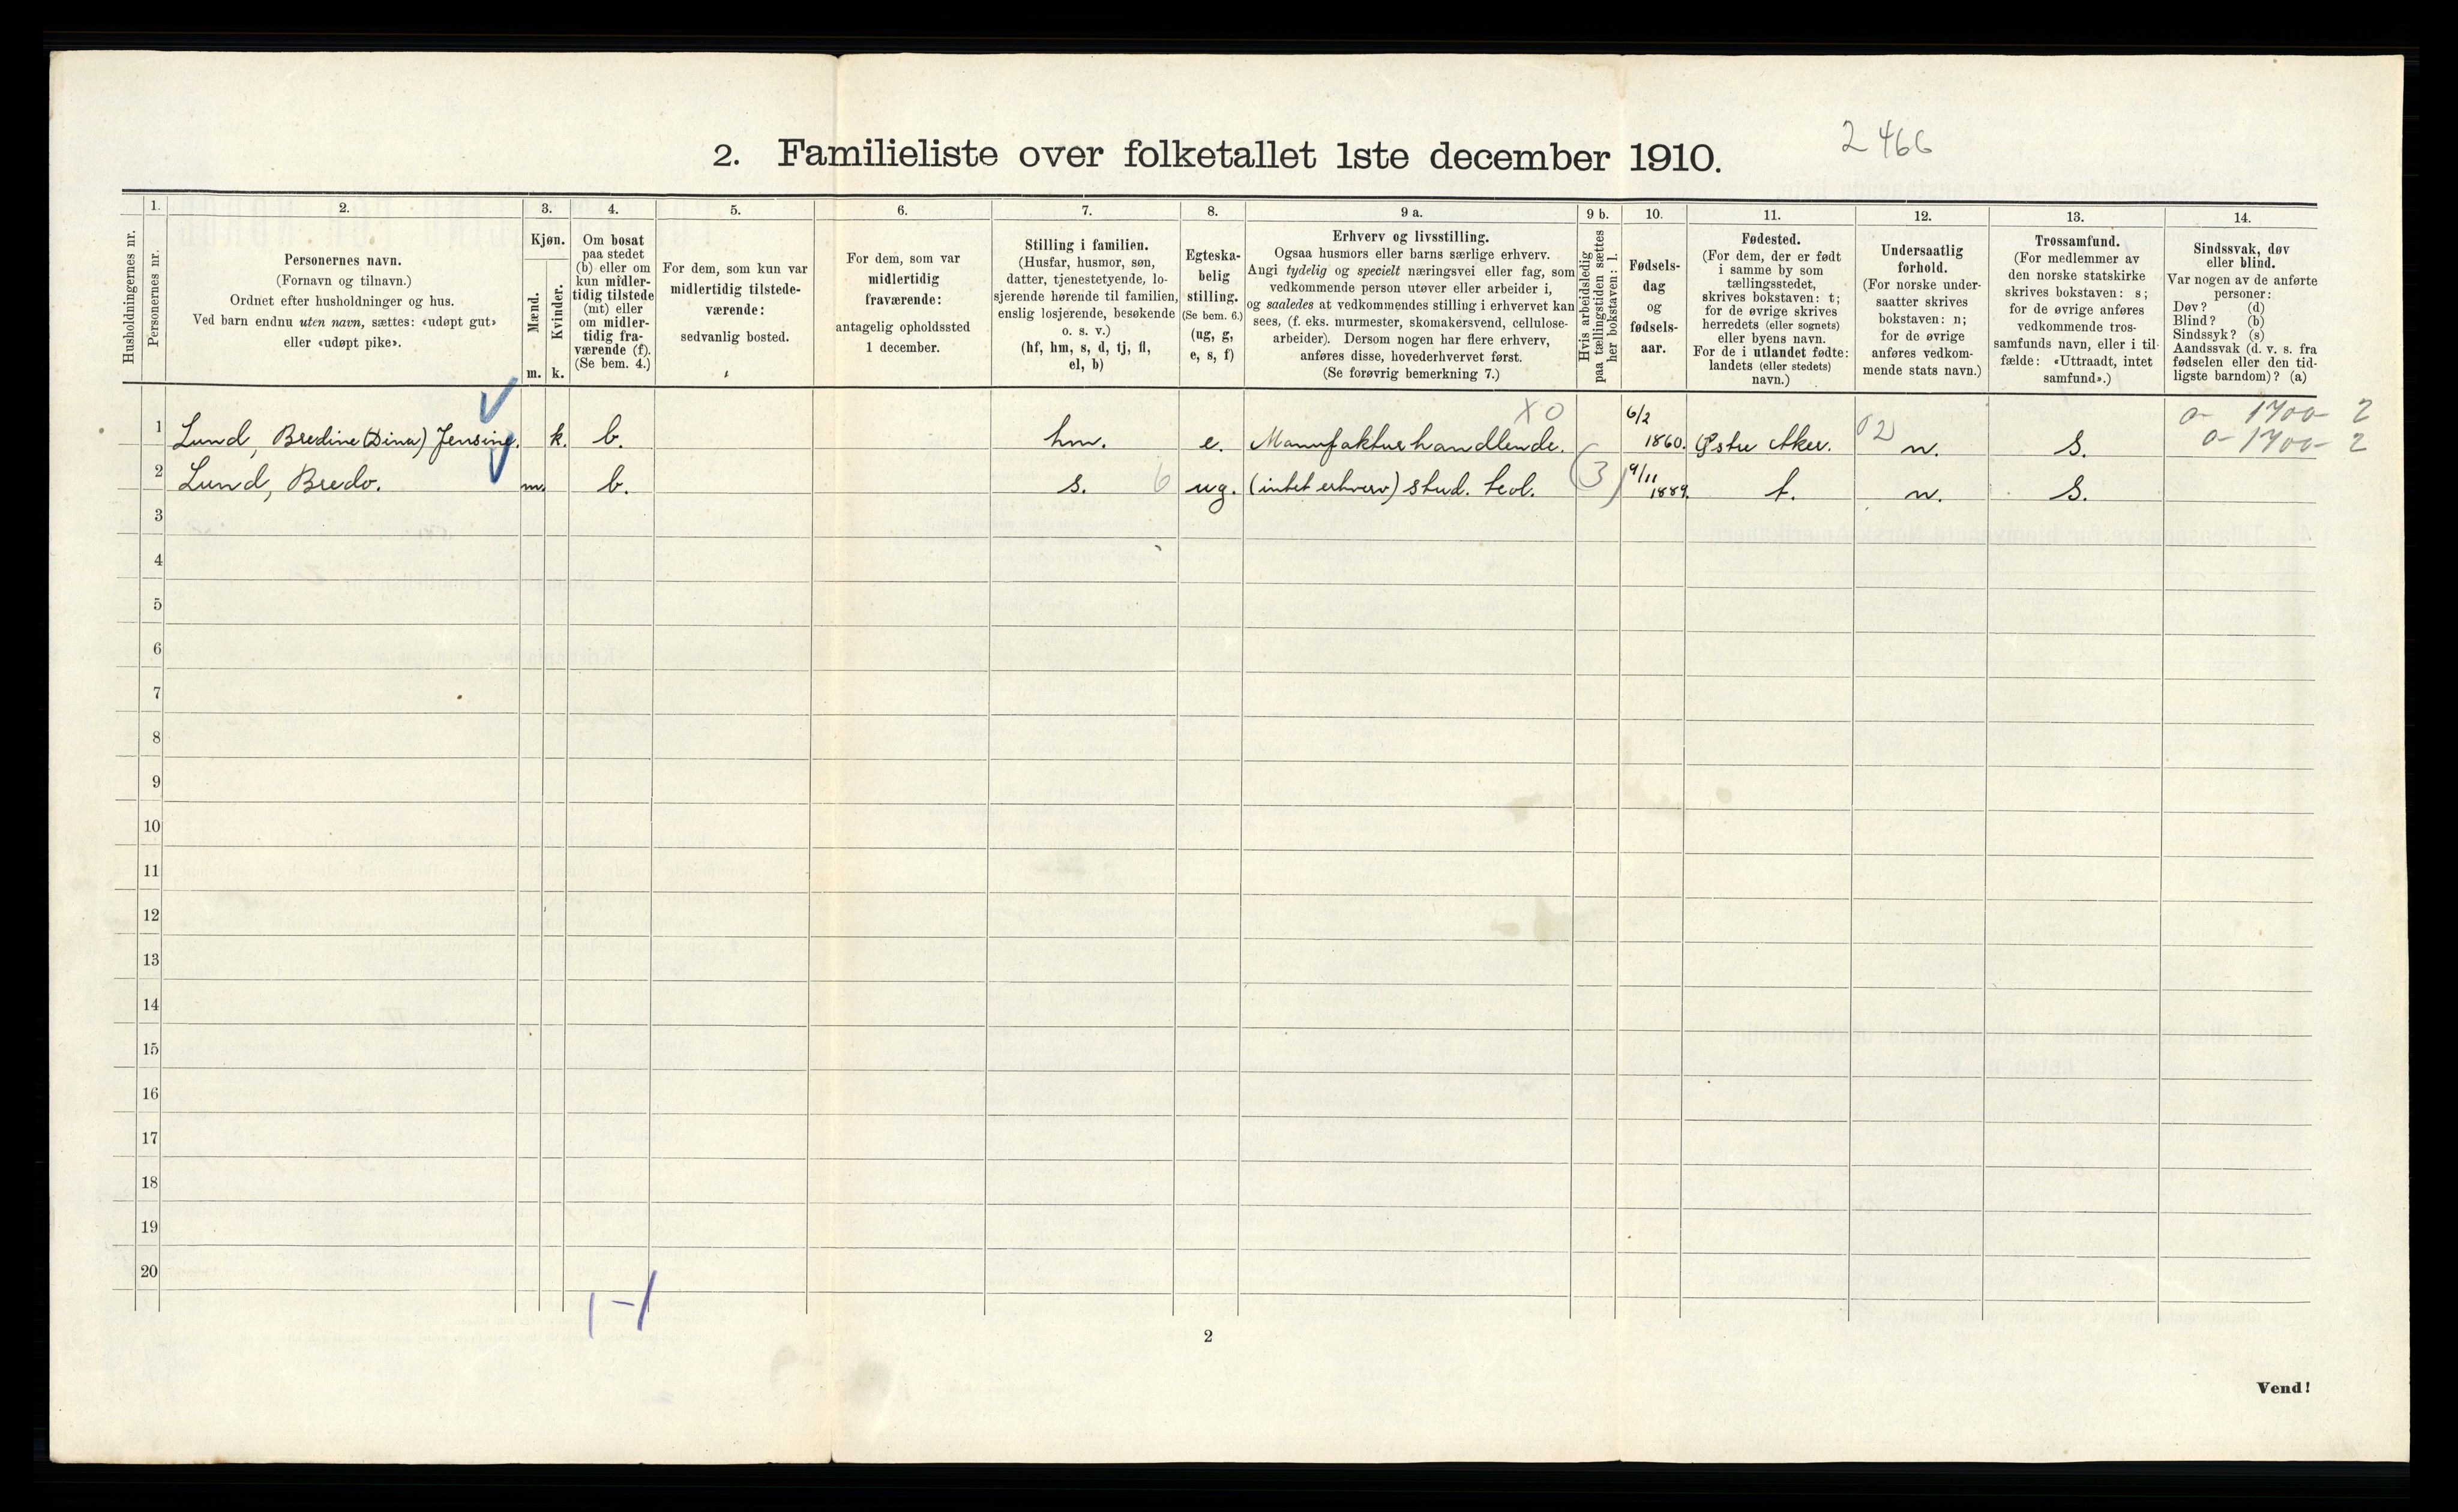 2. Familieliste over folketallet 1ste december 1910.
2466
Husholdningernes nr.
1.
Personernes nr.
2.
Personernes navn.
(Fornavn og tilnavn.)
Ordnet efter husholdninger og hus.
Ved barn endnu uten navn, sættes: «udøpt gut»
eller «udøpt pike».
3.
Kjøn.
Mænd.
m.
Kvinder.
k.
4.
Om bosat
paa stedet
(b) eller om
kun midler-
tidig tilstede
(mt) eller
om midler-
tidig fra-
værende (f).
(Se bem. 4.)
5.
For dem, som kun var
midlertidig tilstede-
værende:
sedvanlig bosted.
6.
For dem, som var
midlertidig
fraværende:
antagelig opholdssted
1 december.
7.
Stilling i familien.
(Husfar, husmor, søn,
datter, tjenestetyende, lo-
sjerende hørende til familien,
enslig losjerende, besøkende
o. s. v.)
(hf, hm, s, d, tj, fl,
el, b)
8.
Egteska-
belig
stilling.
(Se bem. 6.)
(ug, g,
e, s, f)
9 a.
Erhverv og livsstilling.
Ogsaa husmors eller barns særlige erhverv.
Angi tydelig og specielt næringsvei eller fag, som
vedkommende person utøver eller arbeider i,
og saaledes at vedkommendes stilling i erhvervet kan
sees, (f. eks. murmester, skomakersvend, cellulose-
arbeider). Dersom nogen har flere erhverv,
anføres disse, hovederhvervet først.
(Se forøvrig bemerkning 7.)
9 b.
Hvis arbeidsledig
paa tællingstiden sættes
her bokstaven: l.
10.
Fødsels-
dag
og
fødsels-
aar.
11.
Fødested.
(For dem, der er født
i samme by som
tællingsstedet,
skrives bokstaven: t;
for de øvrige skrives
herredets (eller sognets)
eller byens navn.
For de i utlandet fødte:
landets (eller stedets)
navn.)
12.
Undersaatlig
forhold.
(For norske under-
saatter skrives
bokstaven: n;
for de øvrige
anføres vedkom-
mende stats navn.)
13.
Trossamfund.
(For medlemmer av
den norske statskirke
skrives bokstaven: s;
for de øvrige anføres
vedkommende tros-
samfunds navn, eller i til-
fælde: «Uttraadt, intet
samfund».)
14.
Sindssvak, døv
eller blind.
Var nogen av de anførte
personer:
Døv? (d)
Blind? (b)
Sindssyk? (s)
Aandssvak (d. v. s. fra
fødselen eller den tid-
ligste barndom)? (a)
X0 0- 1700- 2
1 Lund, Bredine (Dina) Jensine. k. b. hm. e. Manufakturhandlende. 6/2 1860. Østre Aker. 02 n. S. 0-1700- 2
2 Lund, Bredo. m. b. s. 6 ug. (intet erhverv) stud. teol. (3) 9/11 1889. t. n. S.
3
4
5
6
7
8
9
10
11
12
13
14
15
16
17
18
19
20
1-1
2
Vend!